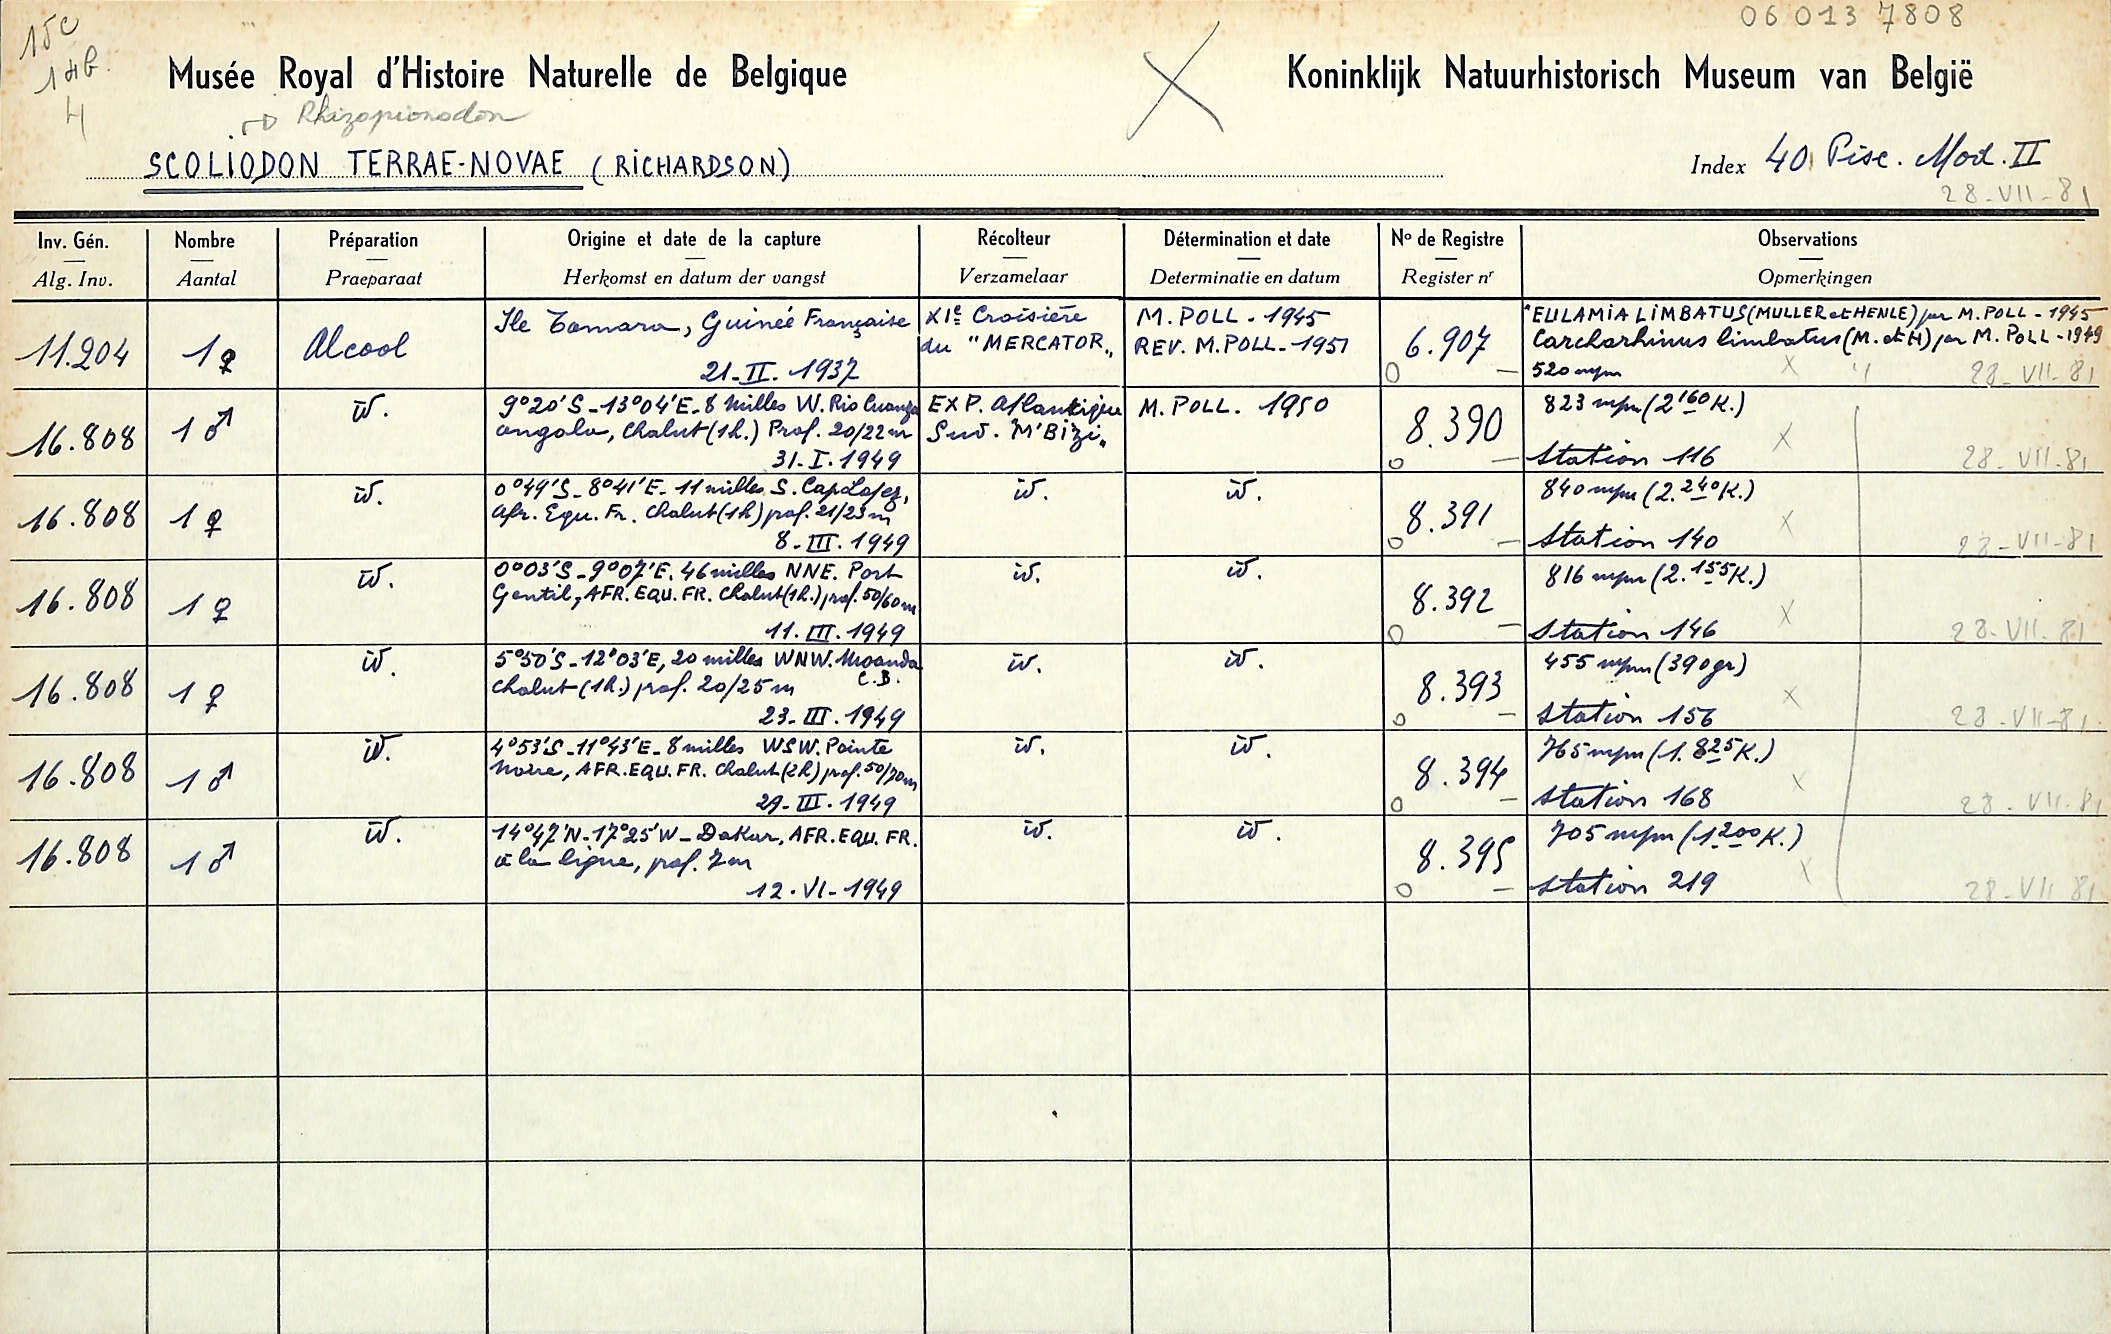 15c
14b.
4
06 013 7808
Musée Royal d'Histoire Naturelle de Belgique
Koninklijk Natuurhistorisch Museum van België
Rhizopionodon
SCOLIODON TERRAE-NOVAE (RICHARDSON)
Index 40 Pisc. Mod. II
28-VII-81
Inv. Gén. Nombre Préparation Origine et date de la capture Récolteur Détermination et date No de Registre Observations
Alg. Inv. Aantal Praeparaat Herkomst en datum der vangst Verzamelaar Determinatie en datum Register nr Opmerkingen
11.204 1♀ Alcool
Ile Tamara, Guinée Française
21-II. 1937
XIe Croisière
du "MERCATOR"
M. POLL - 1945
REV. M. POLL - 1951
6.907
EULAMIA LIMBATUS (MULLER et HENLE) par M. POLL - 1945
Carcharhinus limbatus (M. et H) par M. POLL - 1949
520 mm
X
28-VII-81
16.808 1♂ id.
9°20'S-13°04'E-8 Milles W. Rio Cuanza
Angola, Chalut (1h.) Prof. 20/22m
31-I-1949
EXP. Atlantique
Sud. "M'Bizi"
M. POLL. 1950
8.390
823 mm (2160 K.)
Station 116
X
28-VII-81
16.808 1♀ id.
0°49'S-8°41'E-11 milles S. Cap Lopez,
Afr. Equ. Fr. Chalut (1h) prof. 21/23m
8-III. 1949
id.
id.
8.391
840 mm (2.240 K.)
Station 140
X
28-VII-81
16.808 1♀ id.
0°03'S-9°07'E. 46 milles NNE. Port
Gentil, AFR. EQU. FR. Chalut (1h.) prof. 50/60m
11. III. 1949
id.
id.
8.392
816 mm (2.155 K.)
Station 146
X
28-VII-81
16.808 1♀ id.
5°50'S-12°03'E, 20 milles WNW. Moanda
C.B.
Chalut (1h.) prof. 20/25m
23-III. 1949
id.
id.
8.393
455 mm (390 gr)
Station 156
X
28-VII-81
16.808 1♂ id.
4°53'S-11°43'E-8 milles WSW. Pointe
Noire, AFR. EQU. FR. Chalut (2h) prof. 50/70m
29-III. 1949
id.
id.
8.394
765 mm (1.825 K.)
Station 168
X
28-VII-81
16.808 1♂ id.
14°47'N-17°25'W-Dakar, AFR. EQU. FR.
à la ligne, prof. 7m
12-VI-1949
id.
id.
8.395
705 mm (1200 K.)
Station 219
X
28-VII-81